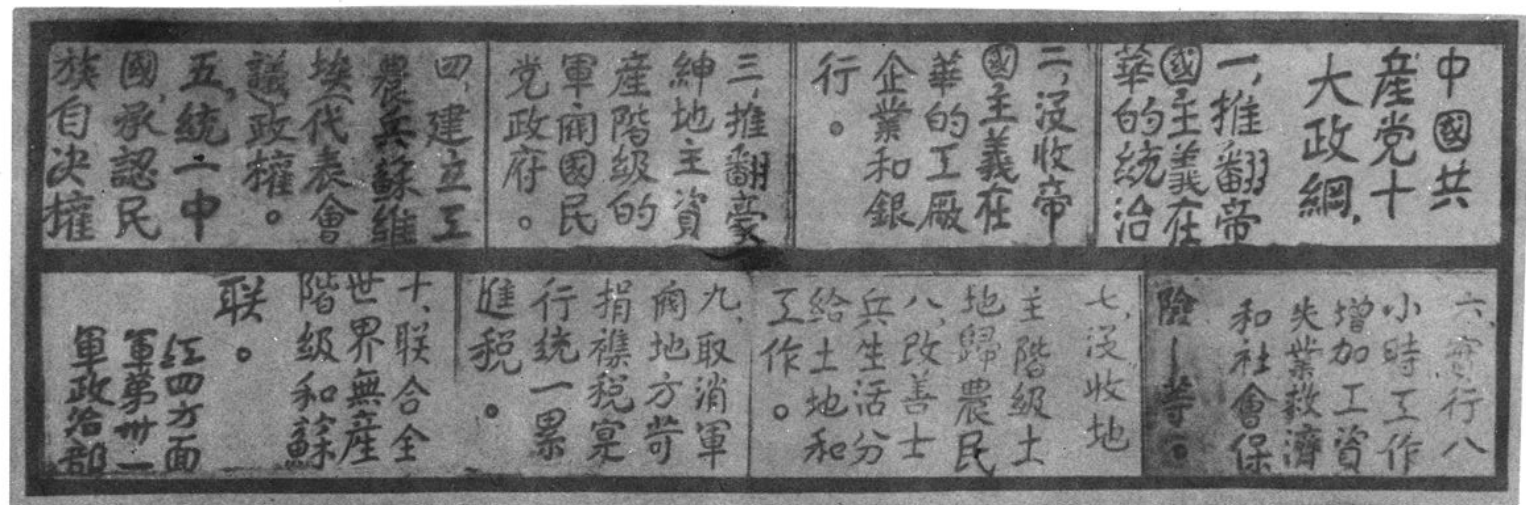 中國共
産党十
大政綱,
一,推翻帝
國主義在
華的統治
二,没收帝
國主義在
華的工廠
企業和銀
行。
三,推翻豪
紳地主資
産階級的
軍閥國民
党政府。
四,建立工
農兵蘇維
埃(代表會
議)政權。
五,統一中
國,承認民
族自决權
六,實行八
小時工作
增加工資
失業救濟
和社會保
險—等。
七,没收地
主階級土
地歸農民
八,改善士
兵生活分
給土地和
工作。
九,取消軍
閥地方苛
捐襍税寔
行統一累
進税。
十,联合全
世界無産
階級和蘇
联。
红四方面
軍第卅一
軍政治部